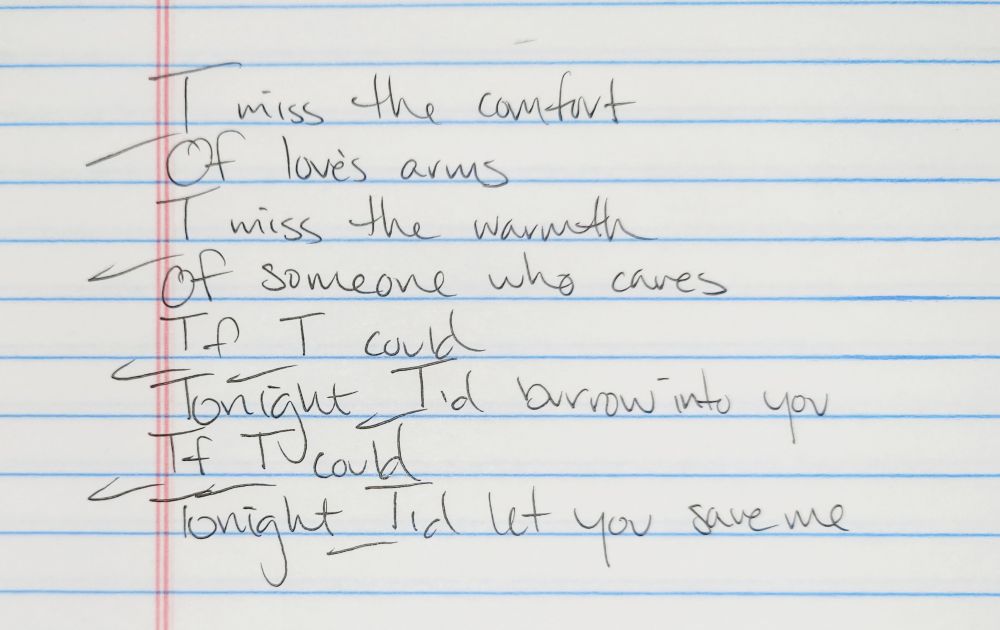 I miss the comfort
Of love's arms
I miss the warmth
Of someone who cares
If I could
Tonight I'd burrow into you
If I could
Tonight I'd let you save me